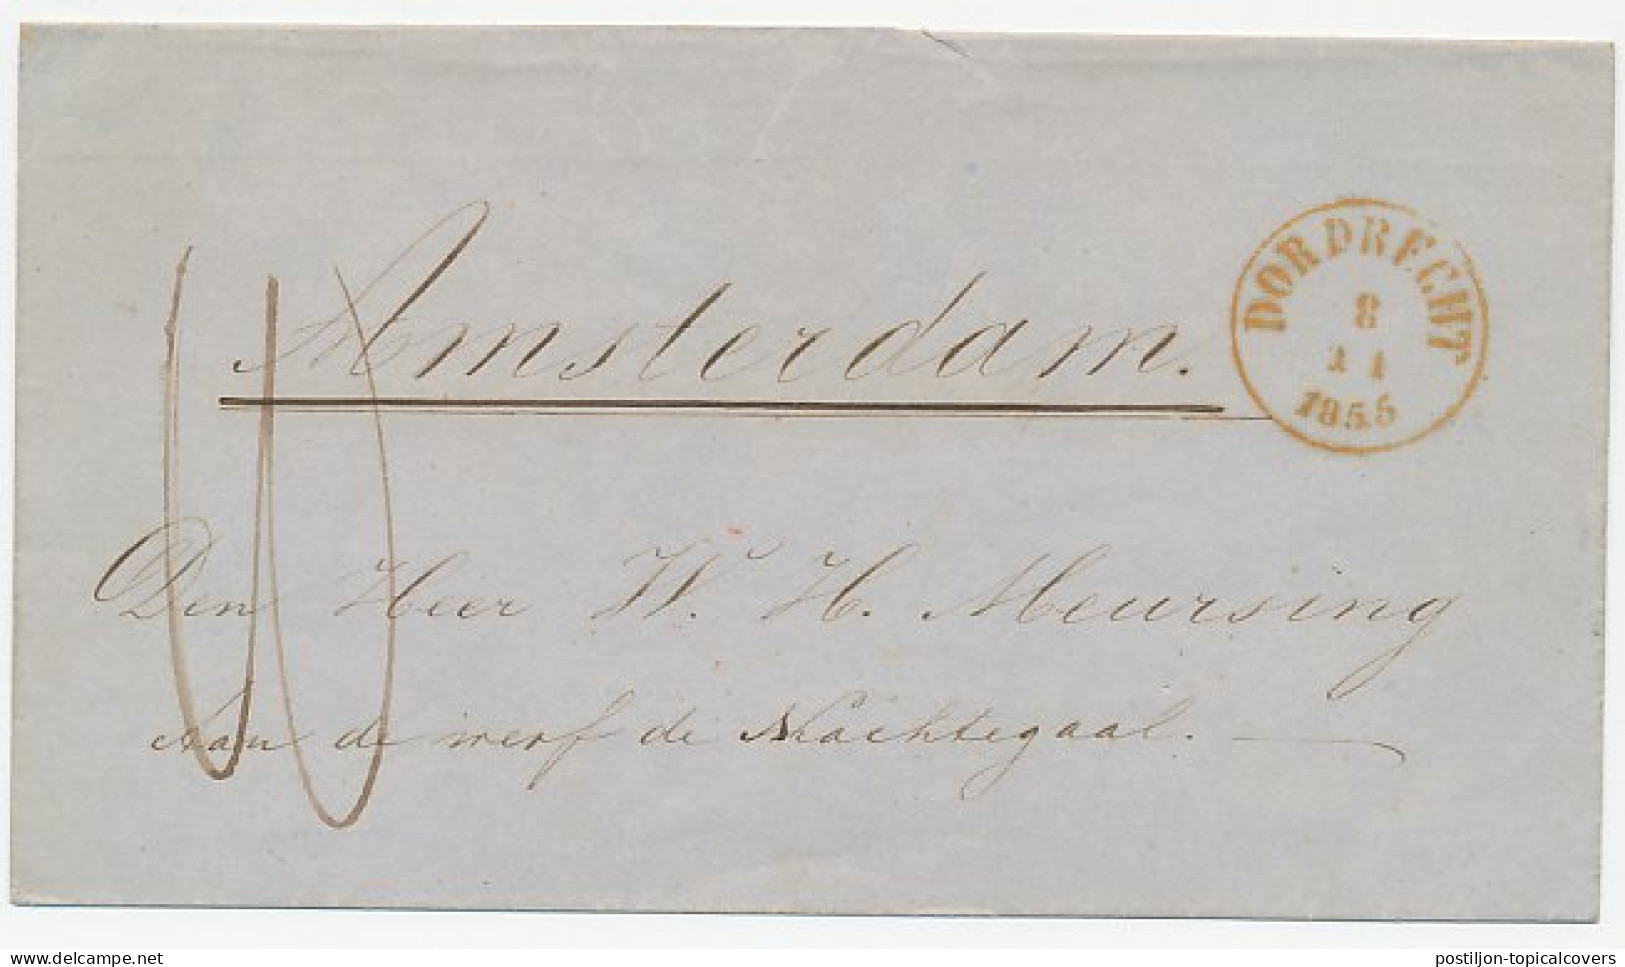 Amsterdam.
DORDRECHT
8
11
1855
10
Den Heer W. H. Meursing
Aan de werf de Nachtegaal.
delcampe.net
postiljon-topicalcovers